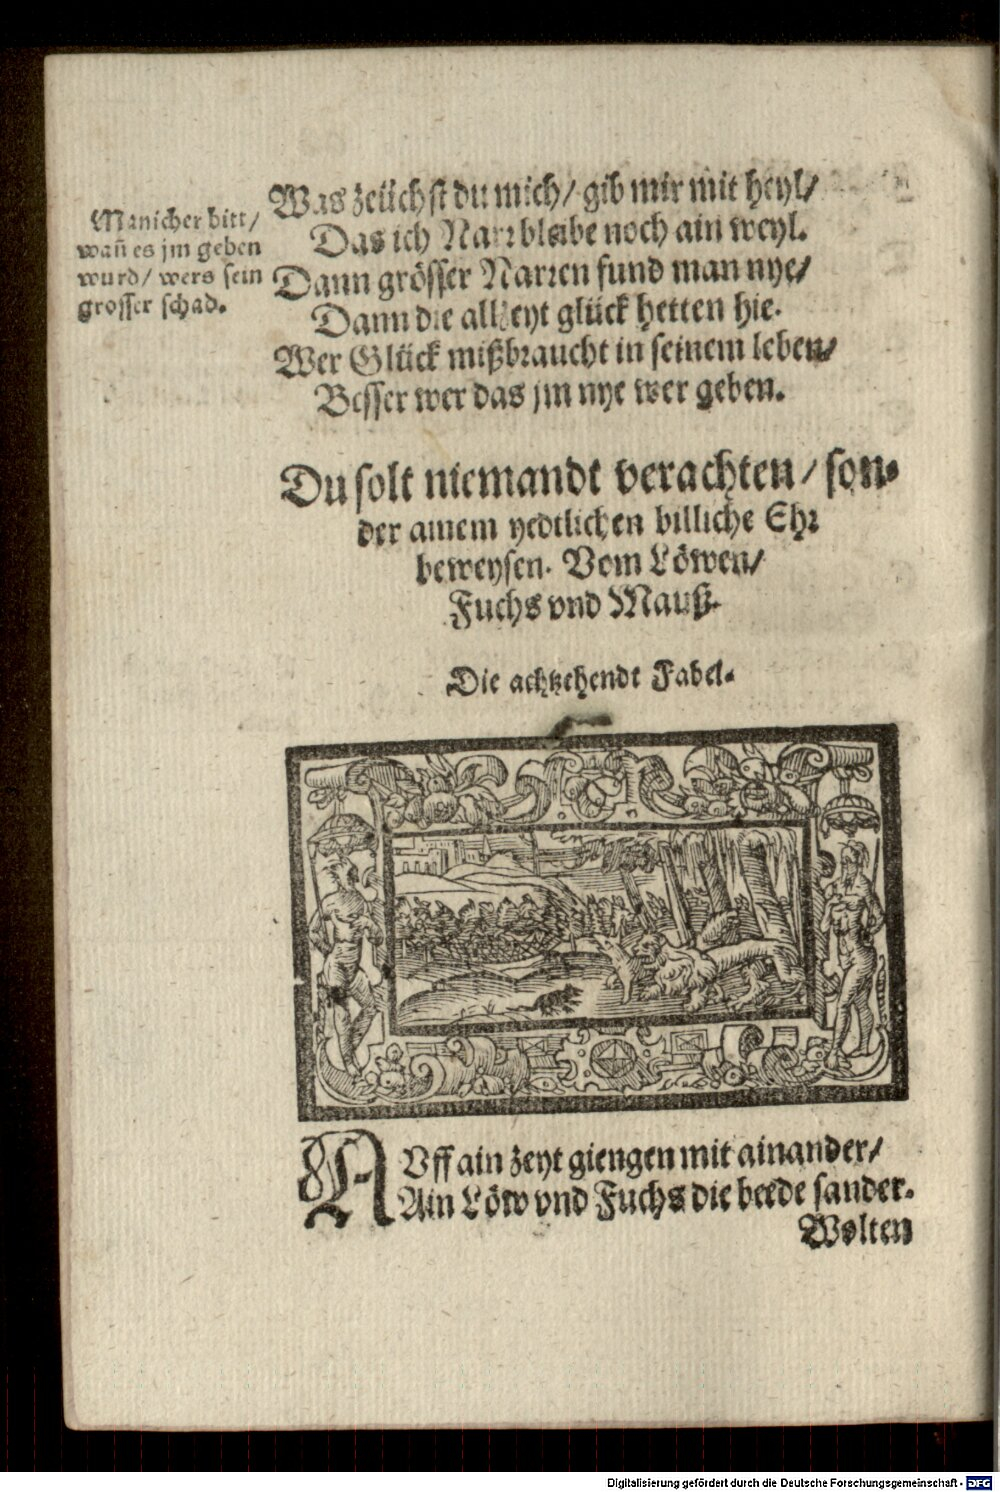 Manicher bitt/
wañ es jm geben
wurd/ wers sein
grosser schad.
Was zeüchst du mich/ gib mir mit heyl/
Das ich Narr bleibe noch ain weyl.
Dann grösser Narren fund man nye/
Dann die allzeyt glück hetten hie.
Wer Glück mißbraucht in seinem leben/
Besser wer das jm nye wer geben.
Du solt niemandt verachten/ son-
der ainem yedtlichen billiche Ehr
beweysen. Vom Löwen/
Fuchs vnd Mauß.
Die achtzehendt Fabel.
AVff ain zeyt giengen mit ainander/
Ain Löw vnd Fuchs die beede sander.
Wolten
Digitalisierung gefördert durch die Deutsche Forschungsgemeinschaft - DFG